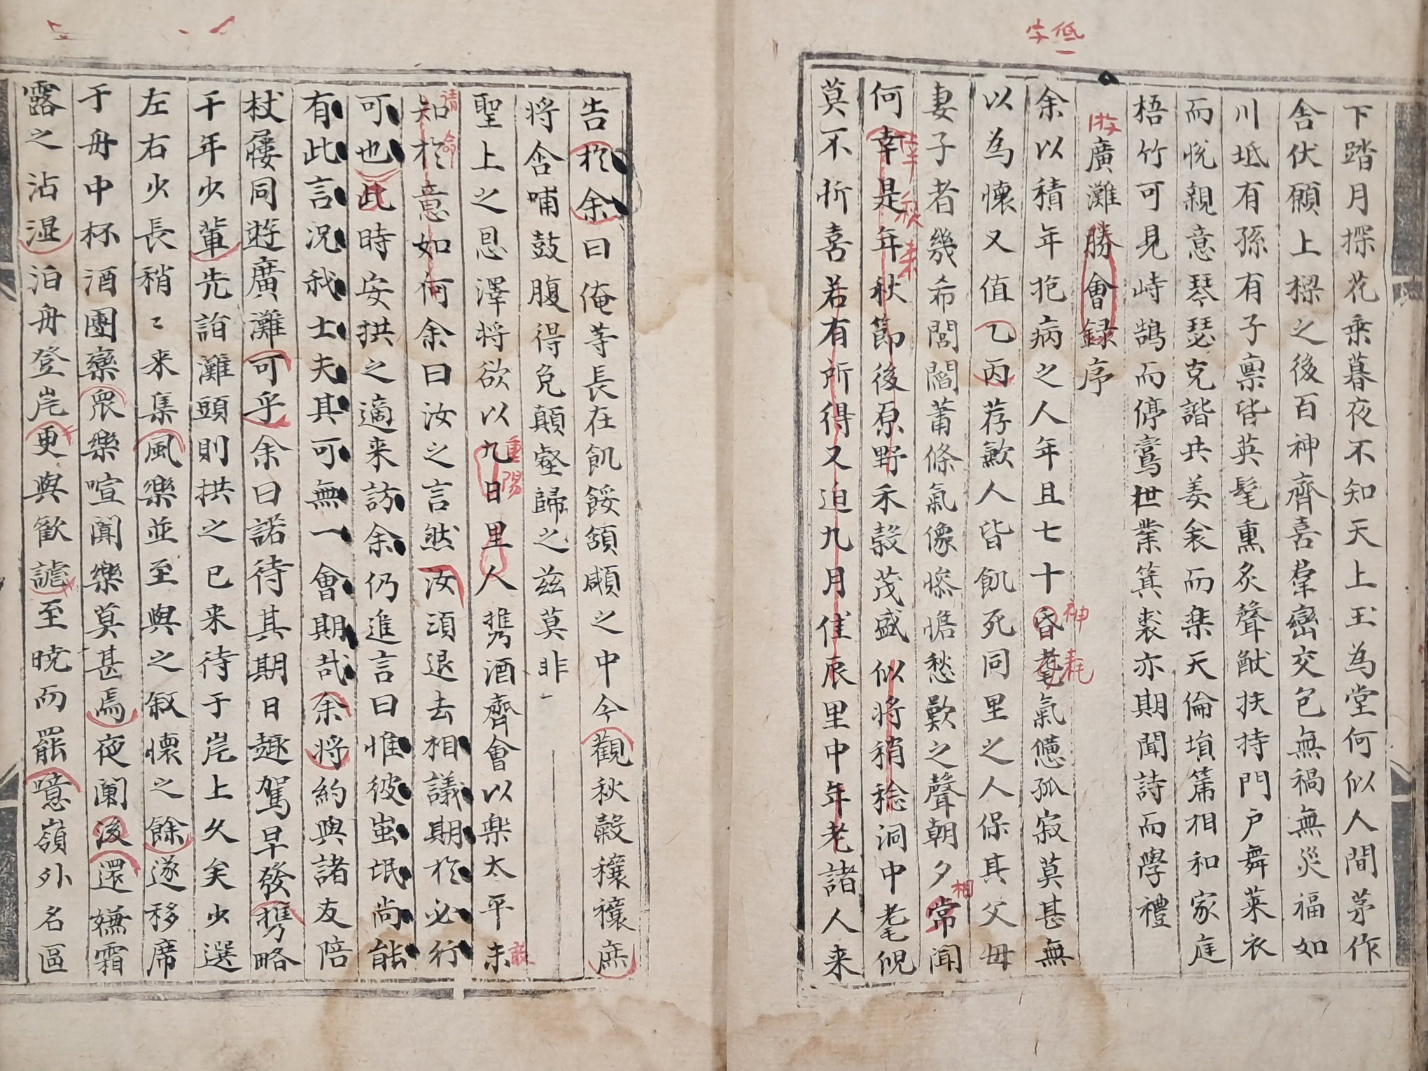 低一字
下踏月探花乘暮夜不知天上玉為堂何似人間茅作
舍伏願上樑之後百神齊喜羣巒交包無禍無災福如
川坻有孫有子禀皆英髦熏炙聲猷扶持門戶舞萊衣
而悅親意琴瑟克諧共姜衾而樂天倫塤篪相和家庭
梧竹可見峙鵠而停鸞世業箕裘亦期聞詩而學禮
游廣灘勝會錄序
余以積年抱病之人年且七十昏耄氣憊孤寂莫甚無
神耗
以為懷又值乙丙荐歉人皆飢死同里之人保其父母
妻子者幾希閭閻蕭條氣像慘憺愁歎之聲朝夕常聞
相
何幸是年秋節後原野禾穀茂盛似將稍稔洞中耄倪
幸
莫不忻喜若有所得又迫九月佳辰里中年老諸人来
告於余曰俺等長在飢餒頷顑之中今觀秋穀穰穰庶
将含哺鼓腹得免顛壑歸之玆莫非
聖上之恩澤将欲以九日里人携酒齊會以樂太平未
重陽
敢
知於意如何余曰汝之言然汝須退去相議期於必行
請命
可也此時安拱之適来訪余仍進言曰惟彼蚩氓尚能
有此言况我士夫其可無一會期哉余将約與諸友陪
杖屨同遊廣灘可乎余曰諾待其期日趣駕早發携略
千年少輩先詣灘頭則拱之已来待于岸上久矣少選
左右少長稍々来集風樂並至與之叙懷之餘遂移席
于舟中杯酒團欒衆樂喧闐樂莫甚焉夜闌後還嫌霜
露之沾湿泊舟登岸更與歡謔至暁而罷噫嶺外名區